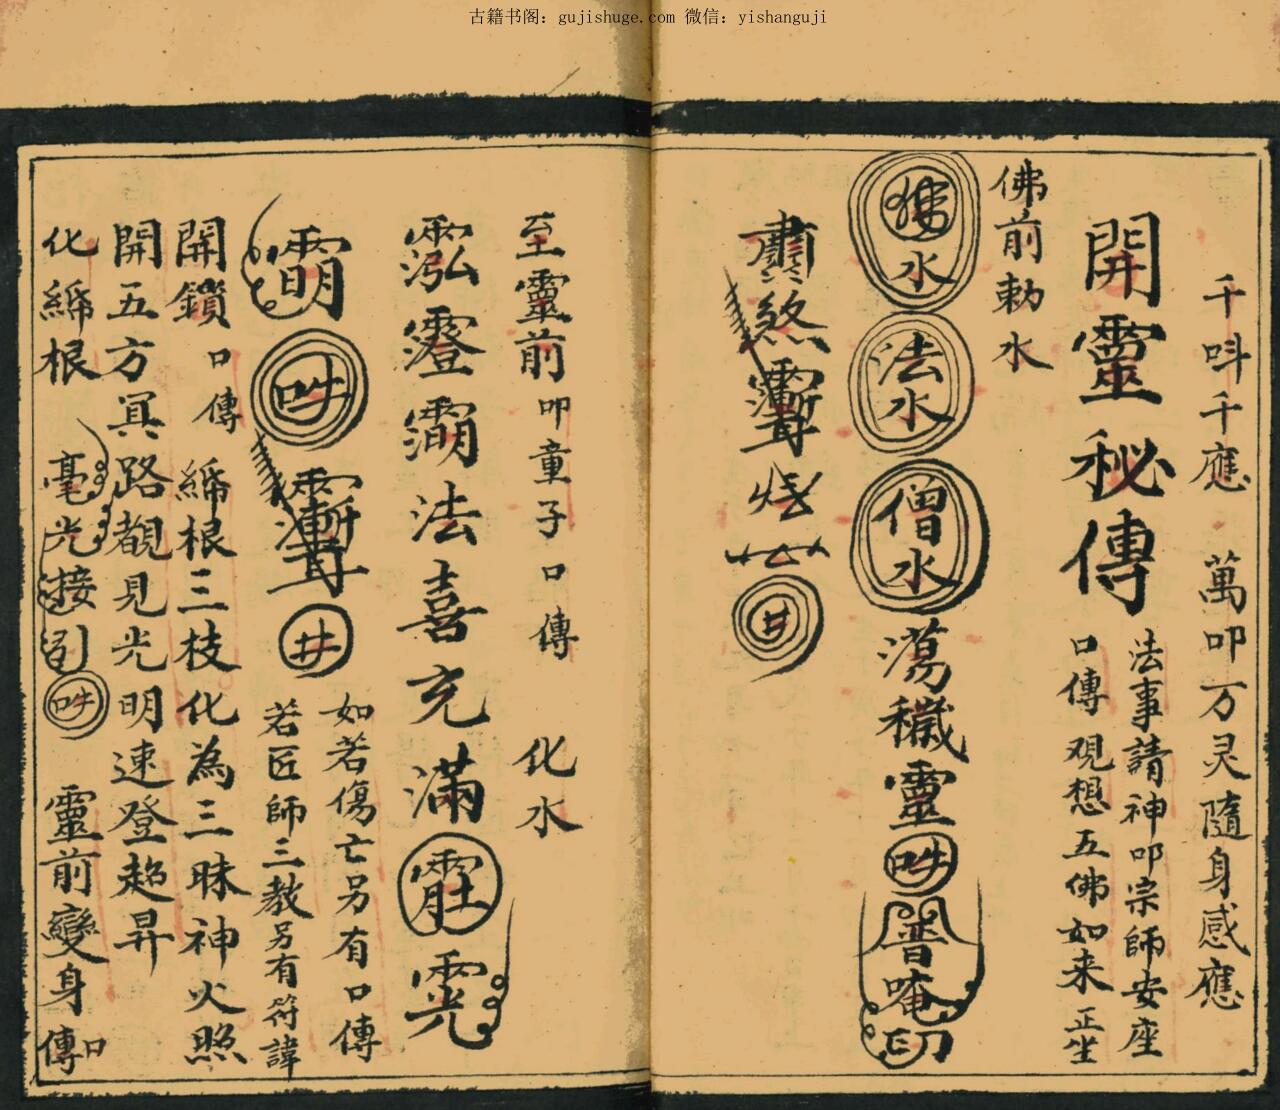 古籍书阁：gujishuge.com 微信：yishanguji
千呌千應 萬叩万灵隨身感應
開靈秘傳
法事請神叩宗師安座
口傳 观想五佛如来正坐
佛前勅水
佛水 法水 僧水 蕩穢靈 普唵印
煞
至靈前叩童子口傳 化水
澄 法喜充滿
井
如若傷亡另有口傳
若匠師三教另有符諱
開鎖口傳 締根三枝化為三昧神火照
開五方冥路覩見光明速登超昇
化締根 毫光接引 靈前變身口傳